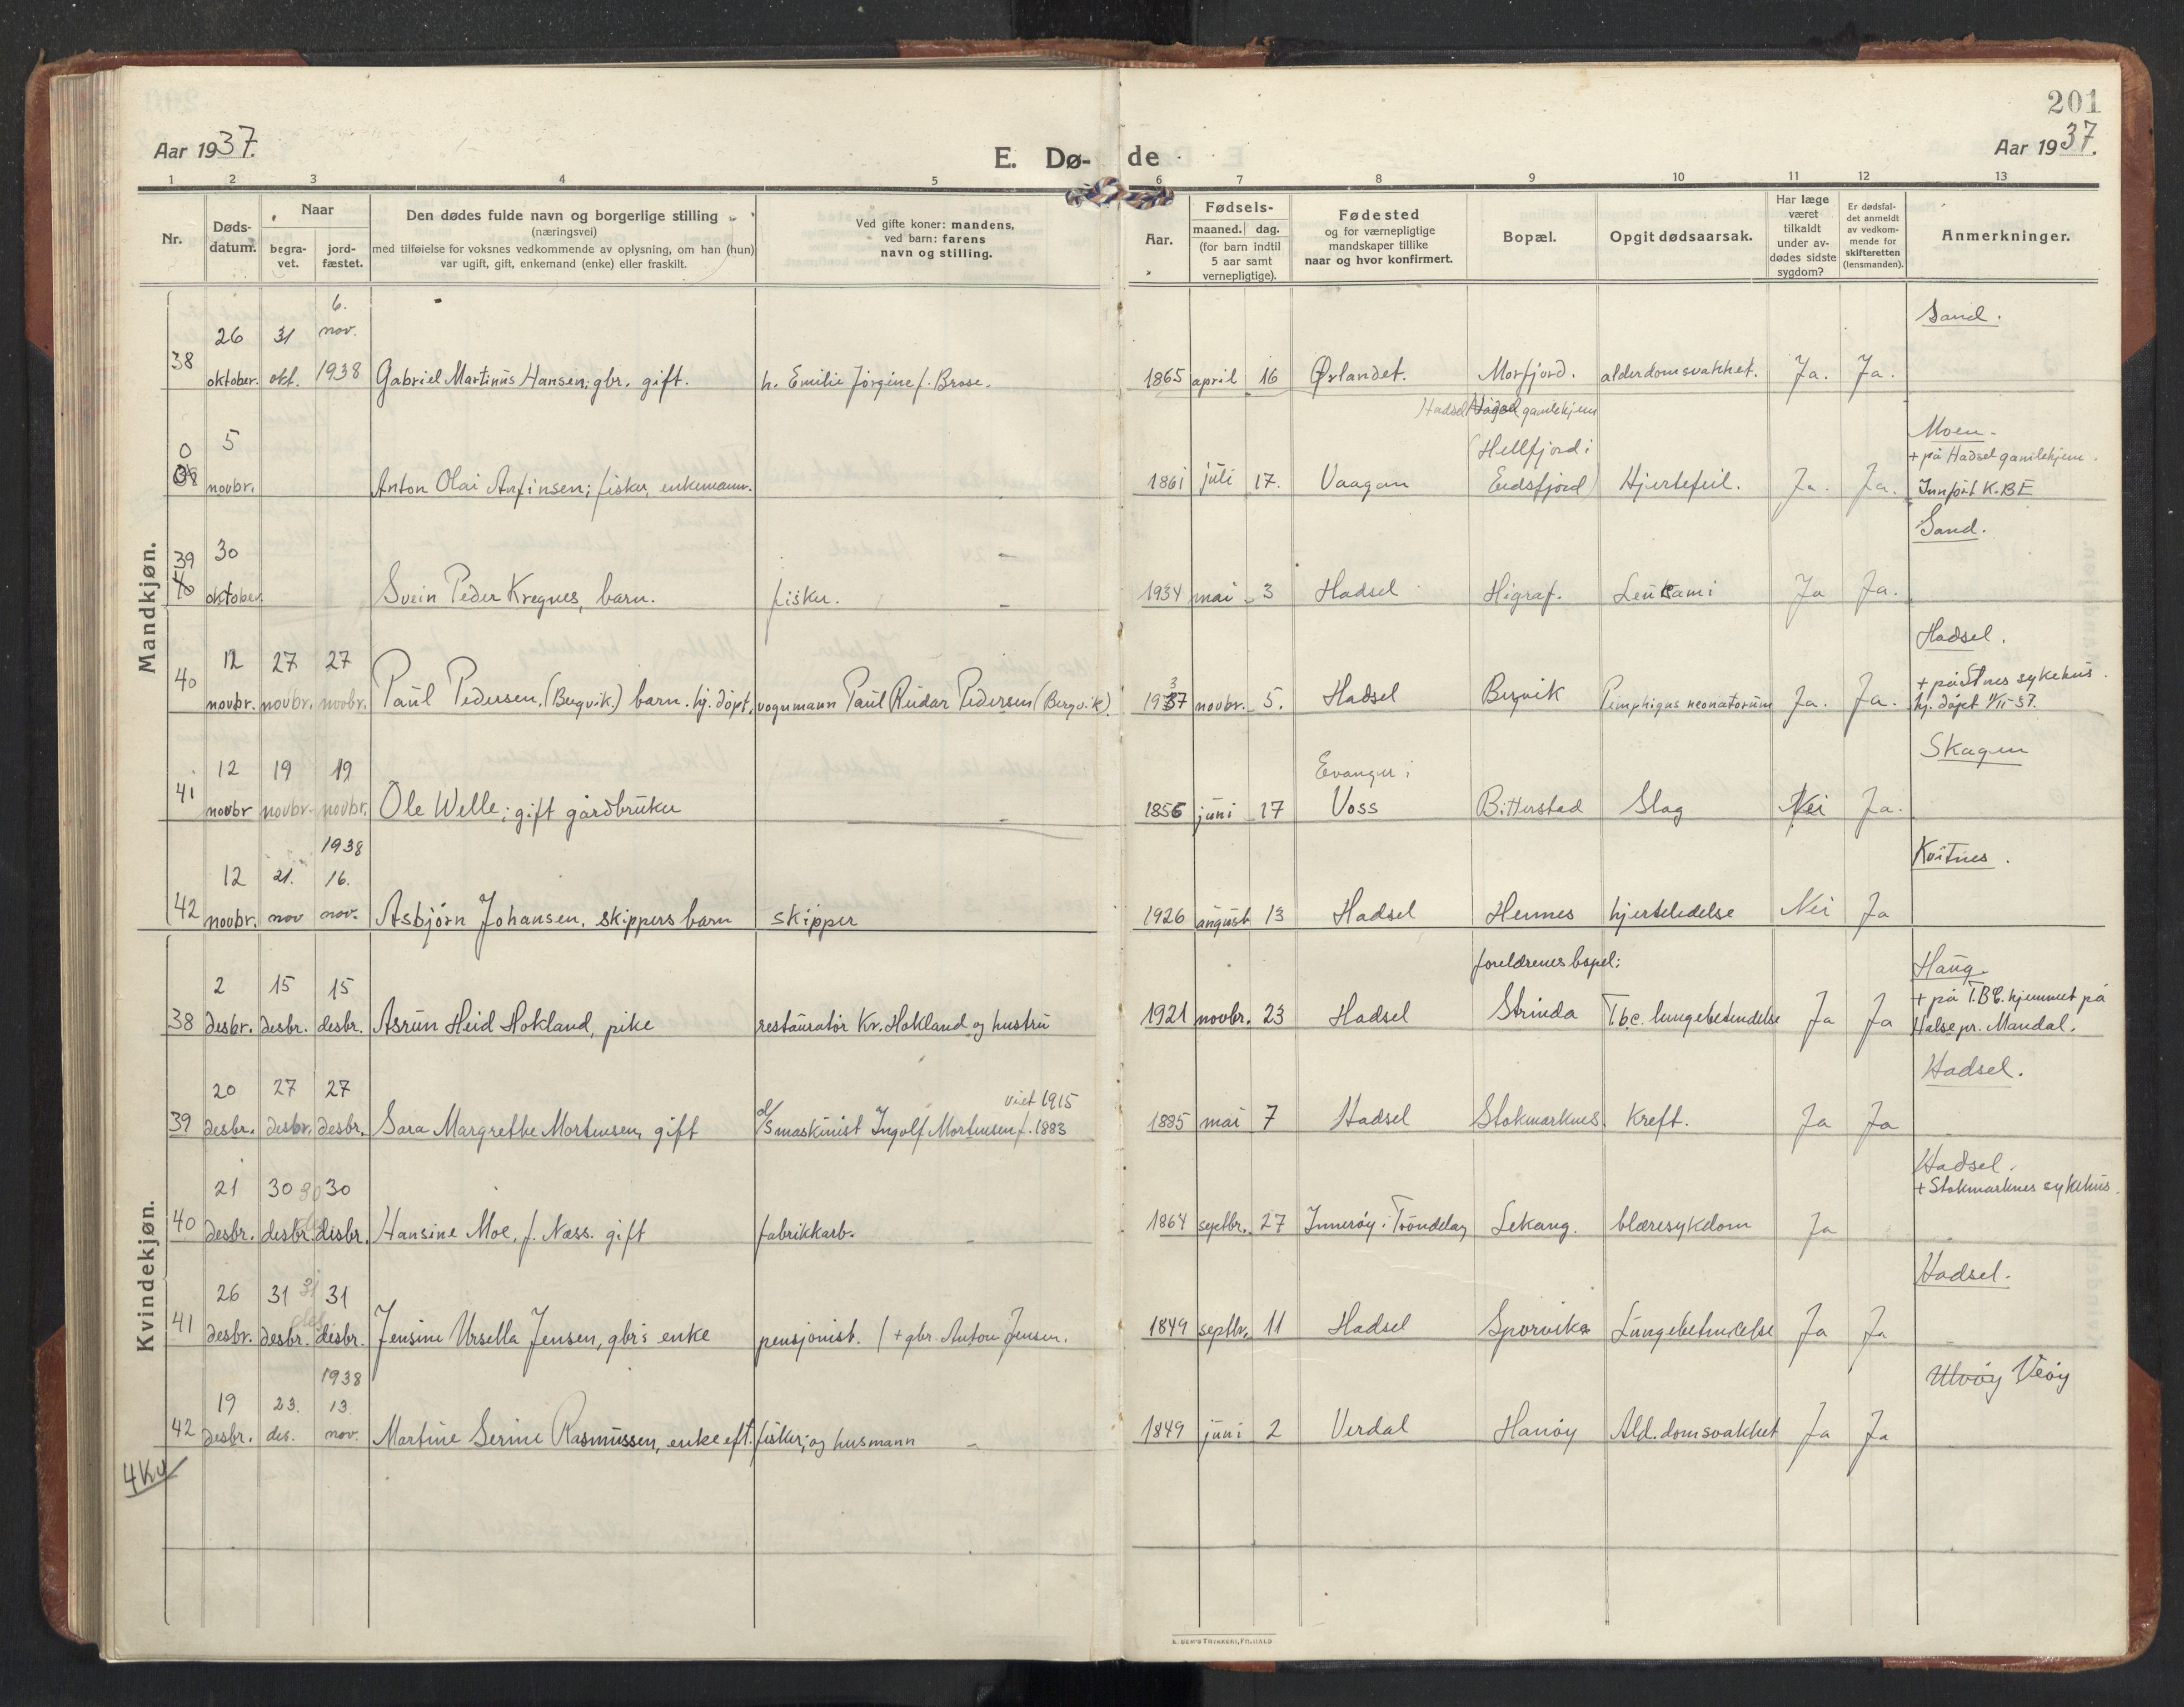 201
Aar 1937.
E. Dø- de
Aar 1937.
1 2 3 4 5 6 7 8 9 10 11 12 13
Nr.
Døds-
datum.
Naar
begra-
vet.
jord-
fæstet.
Den dødes fulde navn og borgerlige stilling
(næringsvei)
med tilføielse for voksnes vedkommende av oplysning, om han (hun)
var ugift, gift, enkemand (enke) eller fraskilt.
Ved gifte koner: mandens,
ved barn: farens
navn og stilling.
Aar.
Fødsels-
maaned. dag.
(for barn indtil
5 aar samt
vernepligtige).
Fødested
og for værnepligtige
mandskaper tillike
naar og hvor konfirmert.
Bopæl.
Opgit dødsaarsak.
Har læge
været
tilkaldt
under av-
dødes sidste
sygdom?
Er dødsfal-
det anmeldt
av vedkom-
mende for
skifteretten
(lensmanden).
Anmerkninger.
Mandkjøn.
6.
26 31 nov. Sand.
38 oktober. okt. 1938 Gabriel Martinus Hansen; gbr. gift. h. Emilie Jörgine f. Brose. 1865 april 16 Ørlandet. Morfjord. alderdomsvakhet. Ja. Ja.
Hadsel gamlehjem
0 5 (Hellfjord i Moen
+ på Hadsel gamlehjem.
38 novbr. Anton Olai Anfinsen; fisker, enkemann. 1861 juli 17. Vaagan Eidsfjord) Hjertefeil. Ja. Ja. Innført K.BE
39 30 Sand.
40 oktober. Svein Peder Kregnes, barn. fisker. 1934 mai 3 Hadsel Higraf. Leukami Ja Ja.
12 27 27 Hadsel.
+ på Stnes sykehus.
40 novbr. novbr. novbr. Paul Pedersen, (Bergvik.) barn. hj. døpt, vognmann Paul Reidar Pedersen (Bergvik). 1937 novbr. 5. Hadsel Bergvik Pemphigus neonatorum Ja. Ja. hj. døpt 11/11-37.
12 19 19 Evanger i Skagen
41 novbr novbr. novbr. Ole Welle; gift gårdbruker 1856 juni 17 Voss Bitterstad Slag Nei Ja.
1938
12 21. 16. Kvitnes.
42 novbr. nov nov. Asbjörn Johansen, skippers barn skipper 1926 august 13 Hadsel Hennes hjertelidelse Nei Ja
Kvindekjøn.
foreldrenes bopel:
2 15 15 Haug.
+ på T.B.C. hjemmet på
38 desbr. desbr. desbr. Asrun Heid Hokland, pike restauratör Kr. Hokland og hustru 1921 novbr. 23 Hadsel Strinda T.b.c. lungebetendelse Ja Ja Halse pr. Mandal.
20 27 27 viet 1915 Hadsel.
39 desbr. desbr. desbr. Sara Margrethe Mortensen, gift d/s maskinist Ingolf Mortensen f. 1883 1885 mai 7 Hadsel Stokmarknes. Kreft. Ja Ja
21 30 30 30 Hadsel.
+ Stokmarknes sykehus.
40 desbr. desbr. desbr. Hansine Moe, f. Næss. gift fabrikkarb. 1864 septbr. 27 Inneröy i Tröndelag Lekang. blæresykdom Ja
26 31 31 31 Hadsel.
41 desbr. desbr. desbr. Jensine Ursella Jensen, gbr's enke pensjonist. (+ gbr. Anton Jensen. 1849 septbr. 11 Hadsel Sporvika Lungebetendelse Ja Ja
1938
19 23. 13. Ulvöy Veöy
42 desbr. des. nov. Martine Serine Rasmussen, enke eft. fisker; og husmann 1849 juni 2 Verdal Hanöy Ald.domsvakhet Ja Ja
4 Kv